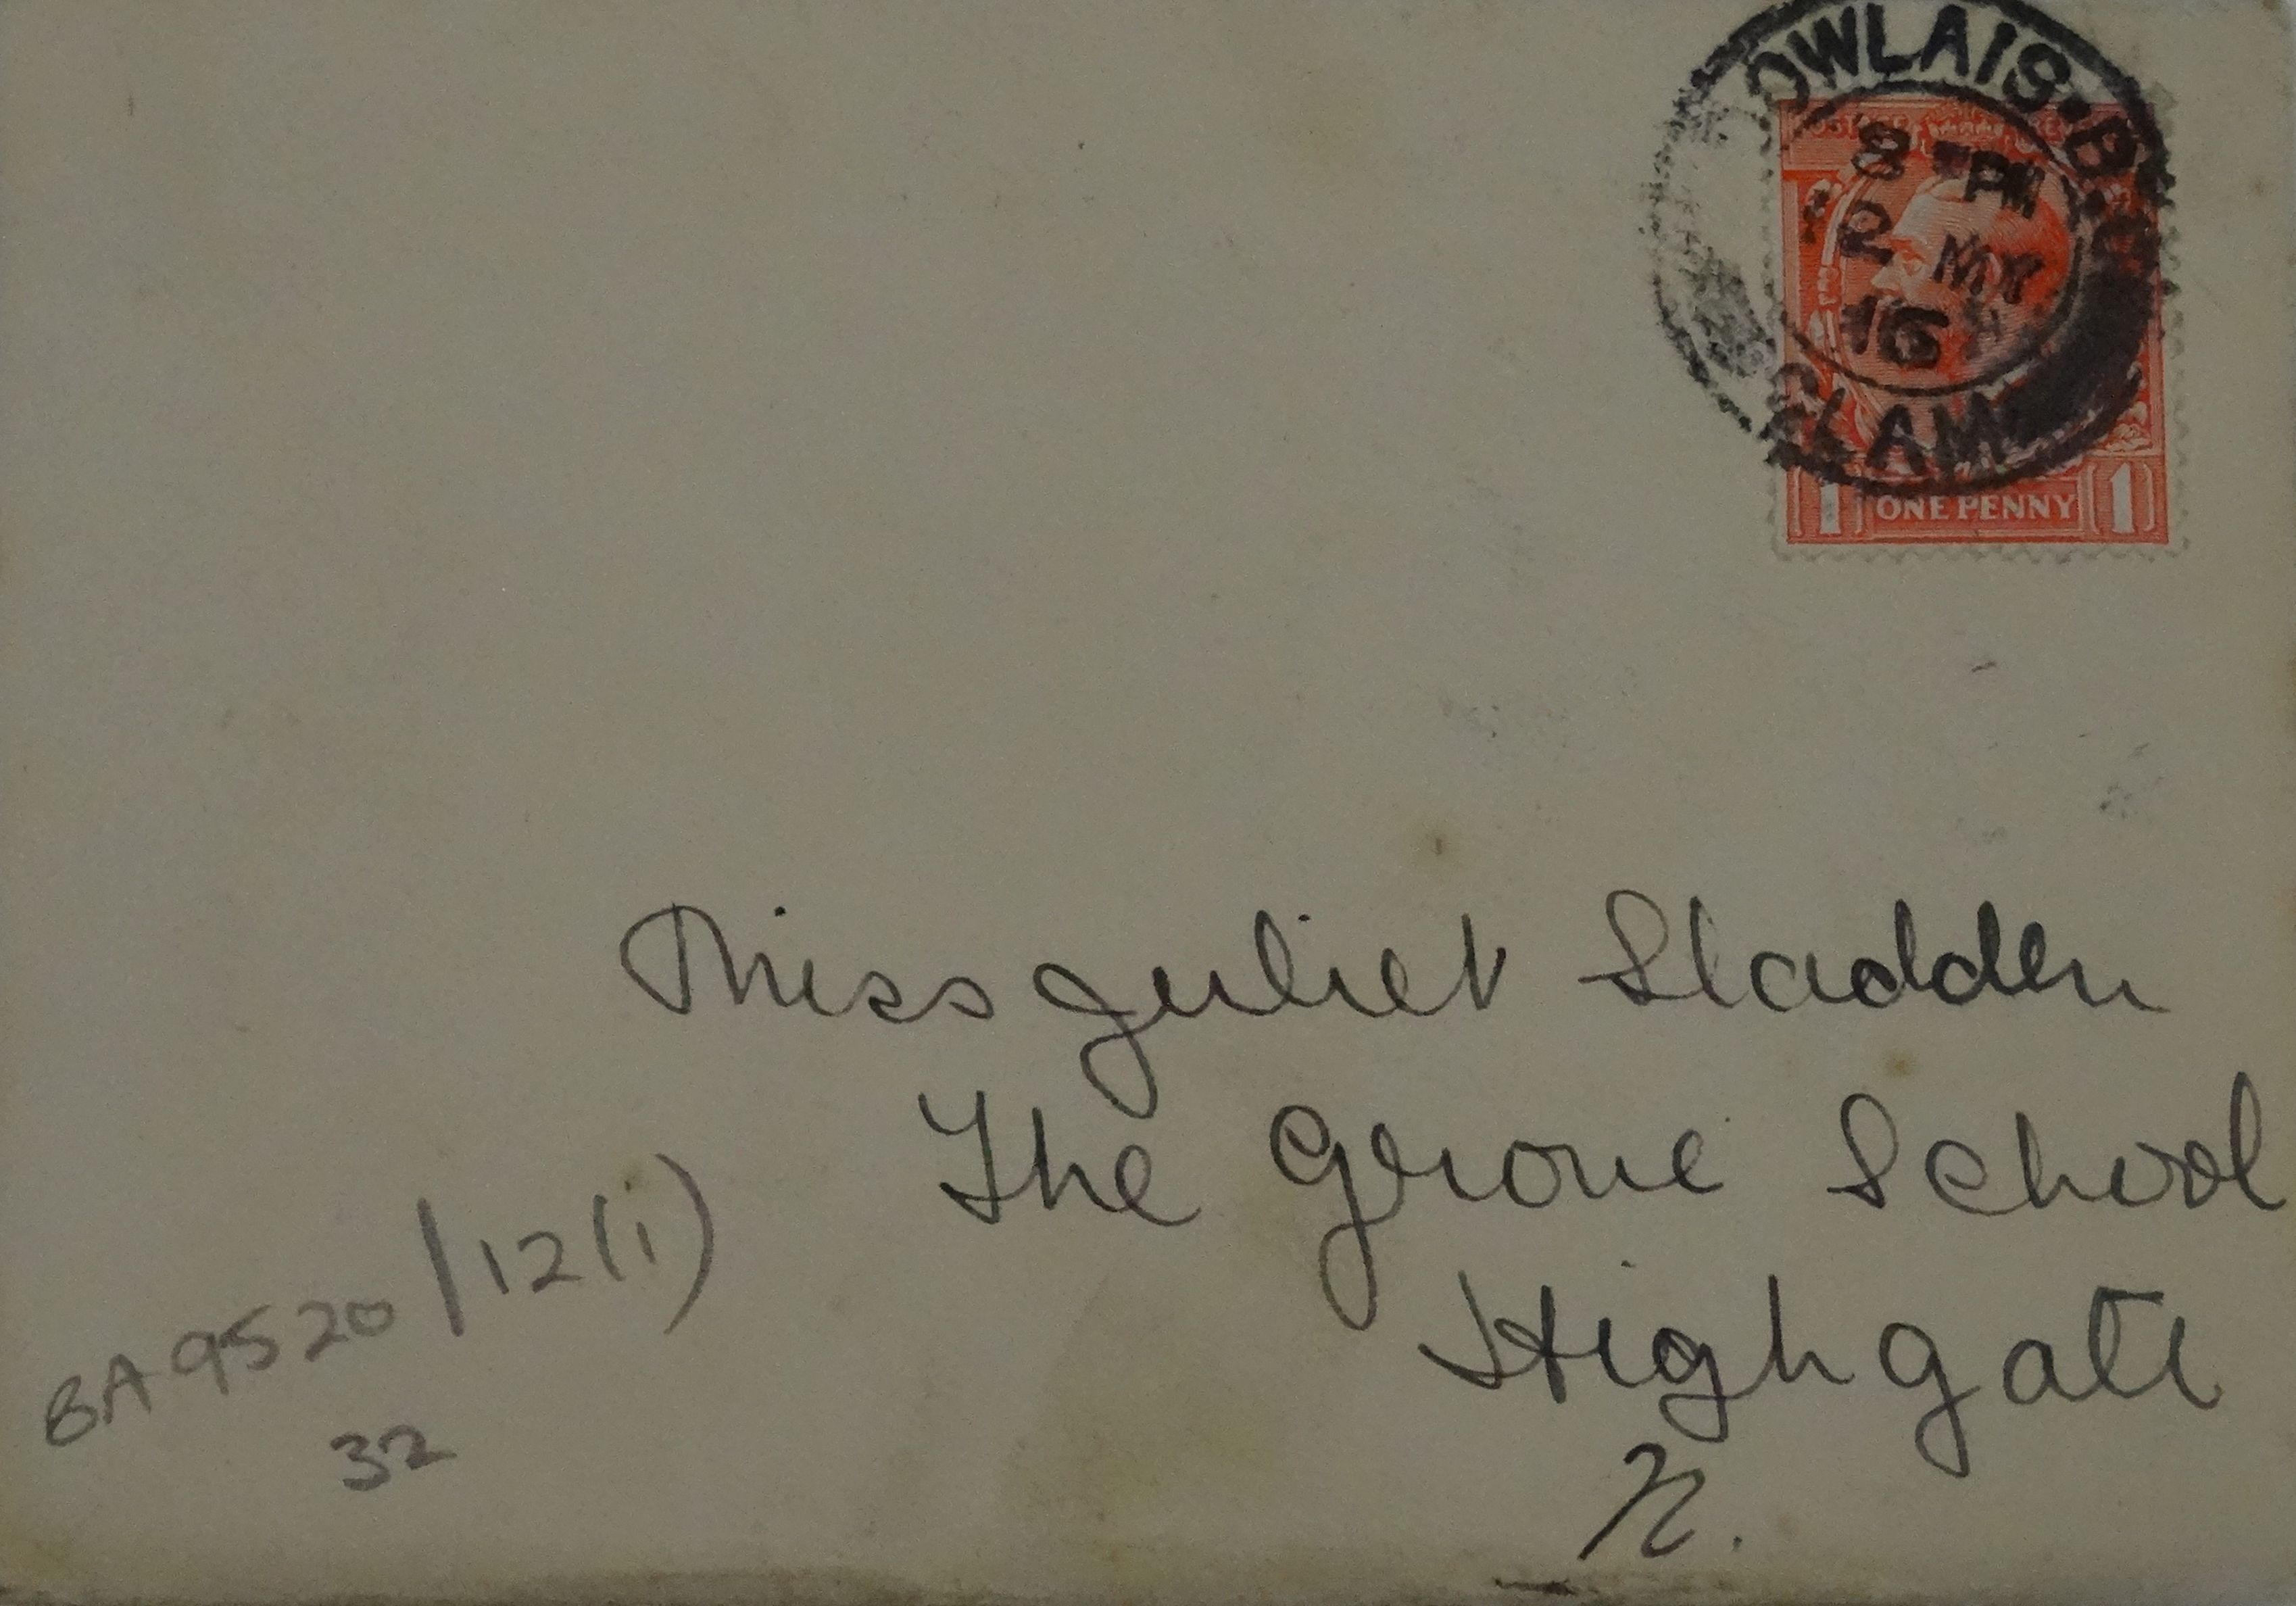 OWLAIS · B.O
8 PM
2 MY
16
GLAM
1 ONE PENNY 1
Miss Juliet Sladden
The Grove School
Highgate
N.
BA 9520/12(i)
32